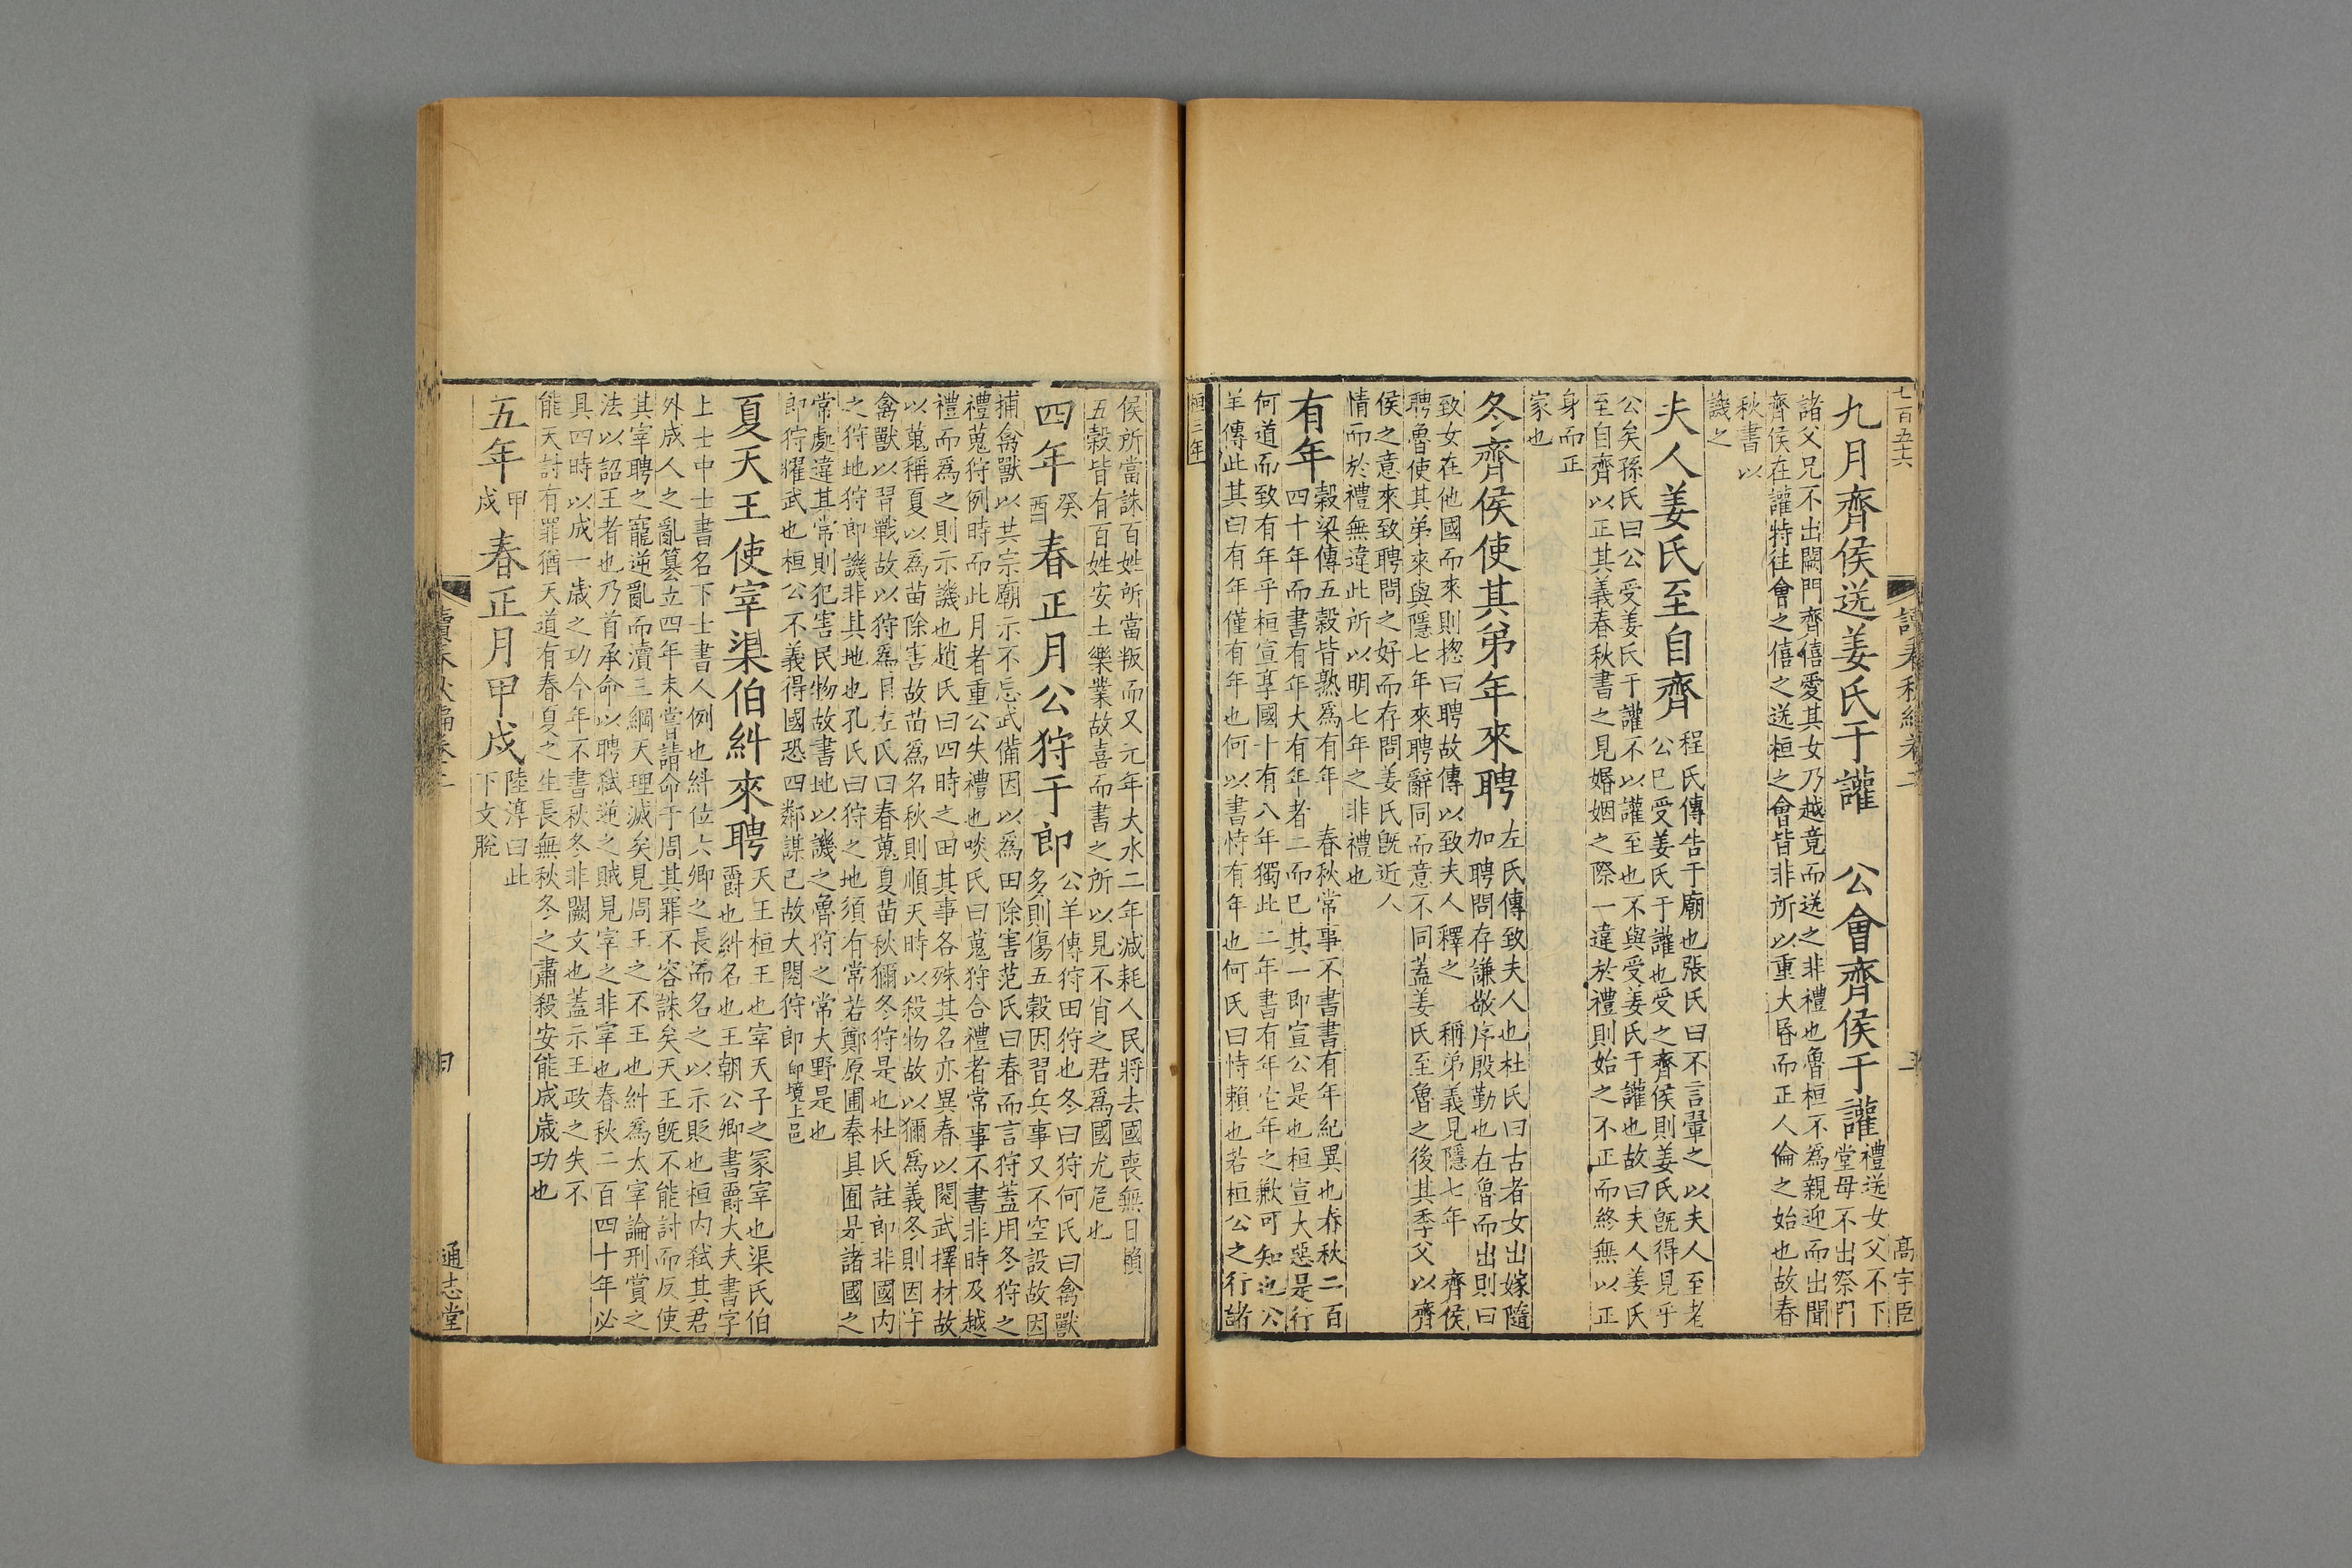 七百五六
高宇臣
九月齊侯送姜氏于讙　公會齊侯于讙禮送女父不下
堂母不出祭門
諸父兄不出闕門齊僖愛其女乃越竟而送之非禮也魯桓不爲親迎而出聞
齊侯在讙特往會之僖之送桓之會皆非所以重大昬而正人倫之始也故春
秋書以
譏之
夫人姜氏至自齊程氏傳告于廟也張氏曰不言翬之以夫人至老
公已受姜氏于讙也受之齊侯則姜氏旣得見乎
公矣孫氏曰公受姜氏于讙不以讙至也不與受姜氏于讙也故曰夫人姜氏
至自齊以正其義春秋書之見婚姻之際一違於禮則始之不正而終無以正
身而正
家也
冬齊侯使其弟年來聘左氏傳致夫人也杜氏曰古者女出嫁隨
加聘問存謙敬序殷勤也在魯而出則曰
致女在他國而來則揔曰聘故傳以致夫人釋之　稱弟義見隱七年　齊侯
聘魯使其弟來與隱七年來聘辭同而意不同蓋姜氏至魯之後其季父以齊
侯之意來致聘問之好而存問姜氏旣近人
情而於禮無違此所以明七年之非禮也
有年穀梁傳五穀皆熟爲有年　春秋常事不書書有年紀異也春秋二百
四十年而書有年大有年者二而已其一即宣公是也桓宣大惡是行
何道而致有年乎桓宣享國十有八年獨此二年書有年它年之歉可知也公
羊傳此其曰有年僅有年也何以書恃有年也何氏曰恃賴也若桓公之行諸
桓三年
侯所當誅百姓所當叛而又元年大水二年減耗人民將去國喪無日賴
五穀皆有百姓安土樂業故喜而書之所以見不肖之君爲國尤危也
四年癸
酉春正月公狩于郎公羊傳狩田狩也冬曰狩何氏曰禽獸
多則傷五穀因習兵事又不空設故因
捕禽獸以共宗廟示不忘武備因以爲田除害范氏曰春而言狩蓋用冬狩之
禮蒐狩例時而此月者重公失禮也啖氏曰蒐狩合禮者常事不書非時及越
禮而爲之則示譏也趙氏曰四時之田其事各殊其名亦異春以閱武擇材故
以蒐稱夏以爲苗除害故苗爲名秋則順天時以殺物故以獮爲義冬則因守
禽獸以習戰故以狩爲目左氏曰春蒐夏苗秋獮冬狩是也杜氏註郎非國内
之狩地狩郎譏非其地也孔氏曰狩之地須有常若鄭原圃秦具囿是諸國之
常處違其常則犯害民物故書地以譏之魯狩之常大野是也
郎狩耀武也桓公不義得國恐四鄰謀已故大閱狩郎郎境上邑
夏天王使宰渠伯糾來聘天王桓王也宰天子之冢宰也渠氏伯
爵也糾名也王朝公卿書爵大夫書字
上士中士書名下士書人例也糾位六卿之長而名之以示貶也桓内弒其君
外成人之亂篡立四年未嘗請命于周其罪不容誅矣天王旣不能討而反使
其宰聘之寵逆亂而瀆三綱天理滅矣見周王之不王也糾爲太宰論刑賞之
法以詔王者也乃首承命以聘弒逆之賊見宰之非宰也春秋二百四十年必
具四時以成一歲之功今年不書秋冬非闕文也蓋示王政之失不
能天討有罪猶天道有春夏之生長無秋冬之肅殺安能成歲功也
五年甲
戌春正月甲戌陸淳曰此
下文脫
通志堂